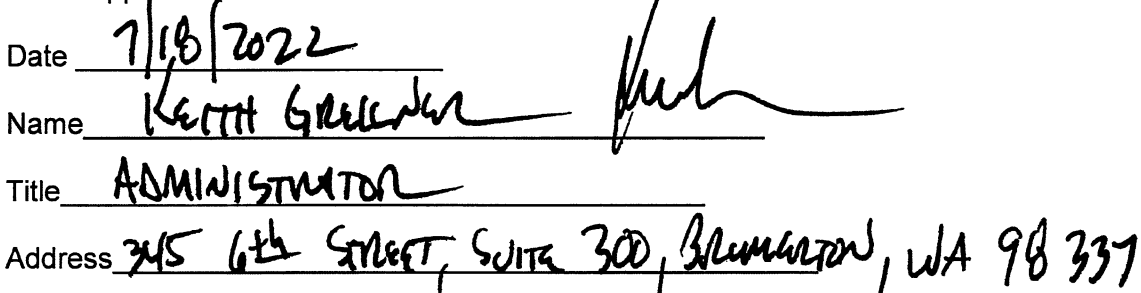 Date 7/18/2022
Name KEITH GRELLNER
Title ADMINISTRATOR
Address 345 6th STREET, SUITE 300, BREMERTON, WA 98337